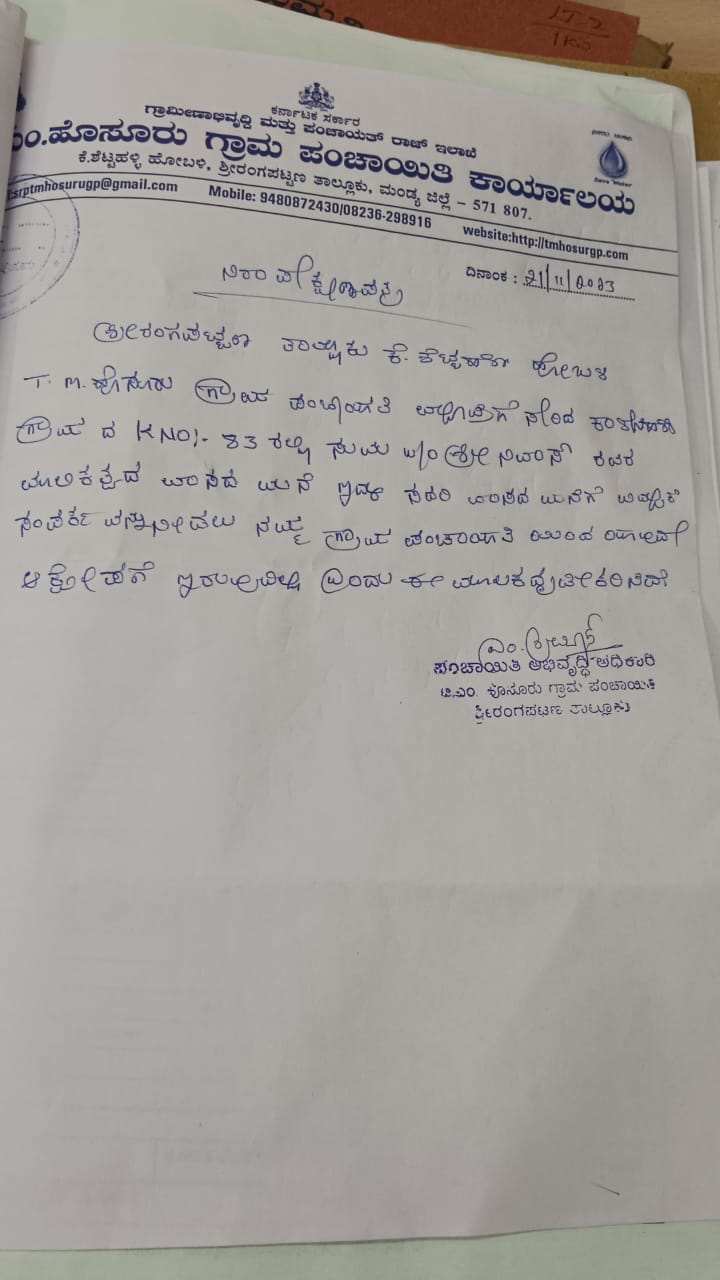 ಕರ್ನಾಟಕ ಸರ್ಕಾರ
ಗ್ರಾಮೀಣಾಭಿವೃದ್ಧಿ ಮತ್ತು ಪಂಚಾಯತ್ ರಾಜ್ ಇಲಾಖೆ
ಎಂ.ಹೊಸೂರು ಗ್ರಾಮ ಪಂಚಾಯಿತಿ ಕಾರ್ಯಾಲಯ
Save Water
ಕೆ.ಶೆಟ್ಟಹಳ್ಳಿ ಹೋಬಳಿ, ಶ್ರೀರಂಗಪಟ್ಟಣ ತಾಲ್ಲೂಕು, ಮಂಡ್ಯ ಜಿಲ್ಲೆ – 571 807.
srptmhosurugp@gmail.com Mobile: 9480872430/08236-298916 website:http://tmhosurgp.com
ದಿನಾಂಕ : 21/11/2023
ನಿರಾಪೇಕ್ಷಣಾಪತ್ರ
ಶ್ರೀರಂಗಪಟ್ಟಣ ತಾಲ್ಲೂಕು ಕೆ. ಶೆಟ್ಟಹಳ್ಳಿ ಹೋಬಳಿ
T. M. ಹೊಸೂರು ಗ್ರಾಮ ಪಂಚಾಯತಿ ವ್ಯಾಪ್ತಿಗೆ ಸೇರಿದ
ಗ್ರಾಮ ದ KNO/- 83 ರಲ್ಲಿ ಸುಮ W/O ಶ್ರೀನಿವಾಸ್ ರವರ
ಮಾಲಿಕತ್ವದ ವಾಸದ ಮನೆ ಇದ್ದು ಸದರಿ ವಾಸದ ಮನೆಗೆ ವಿದ್ಯುತ್
ಸಂಪರ್ಕ ವನ್ನು ನೀಡಲು ನಮ್ಮ ಗ್ರಾಮ ಪಂಚಾಯತಿ ಯಿಂದ ಯಾವುದೇ
ಆಕ್ಷೇಪಣೆ ಇರುವುದಿಲ್ಲ ಎಂದು ಈ ಮೂಲಕ ದೃಢೀಕರಿಸಿದೆ
ಪಂಚಾಯಿತಿ ಅಭಿವೃದ್ಧಿ ಅಧಿಕಾರಿ
ಟಿ.ಎಂ. ಹೊಸೂರು ಗ್ರಾಮ ಪಂಚಾಯಿತಿ
ಶ್ರೀರಂಗಪಟ್ಟಣ ತಾಲ್ಲೂಕು